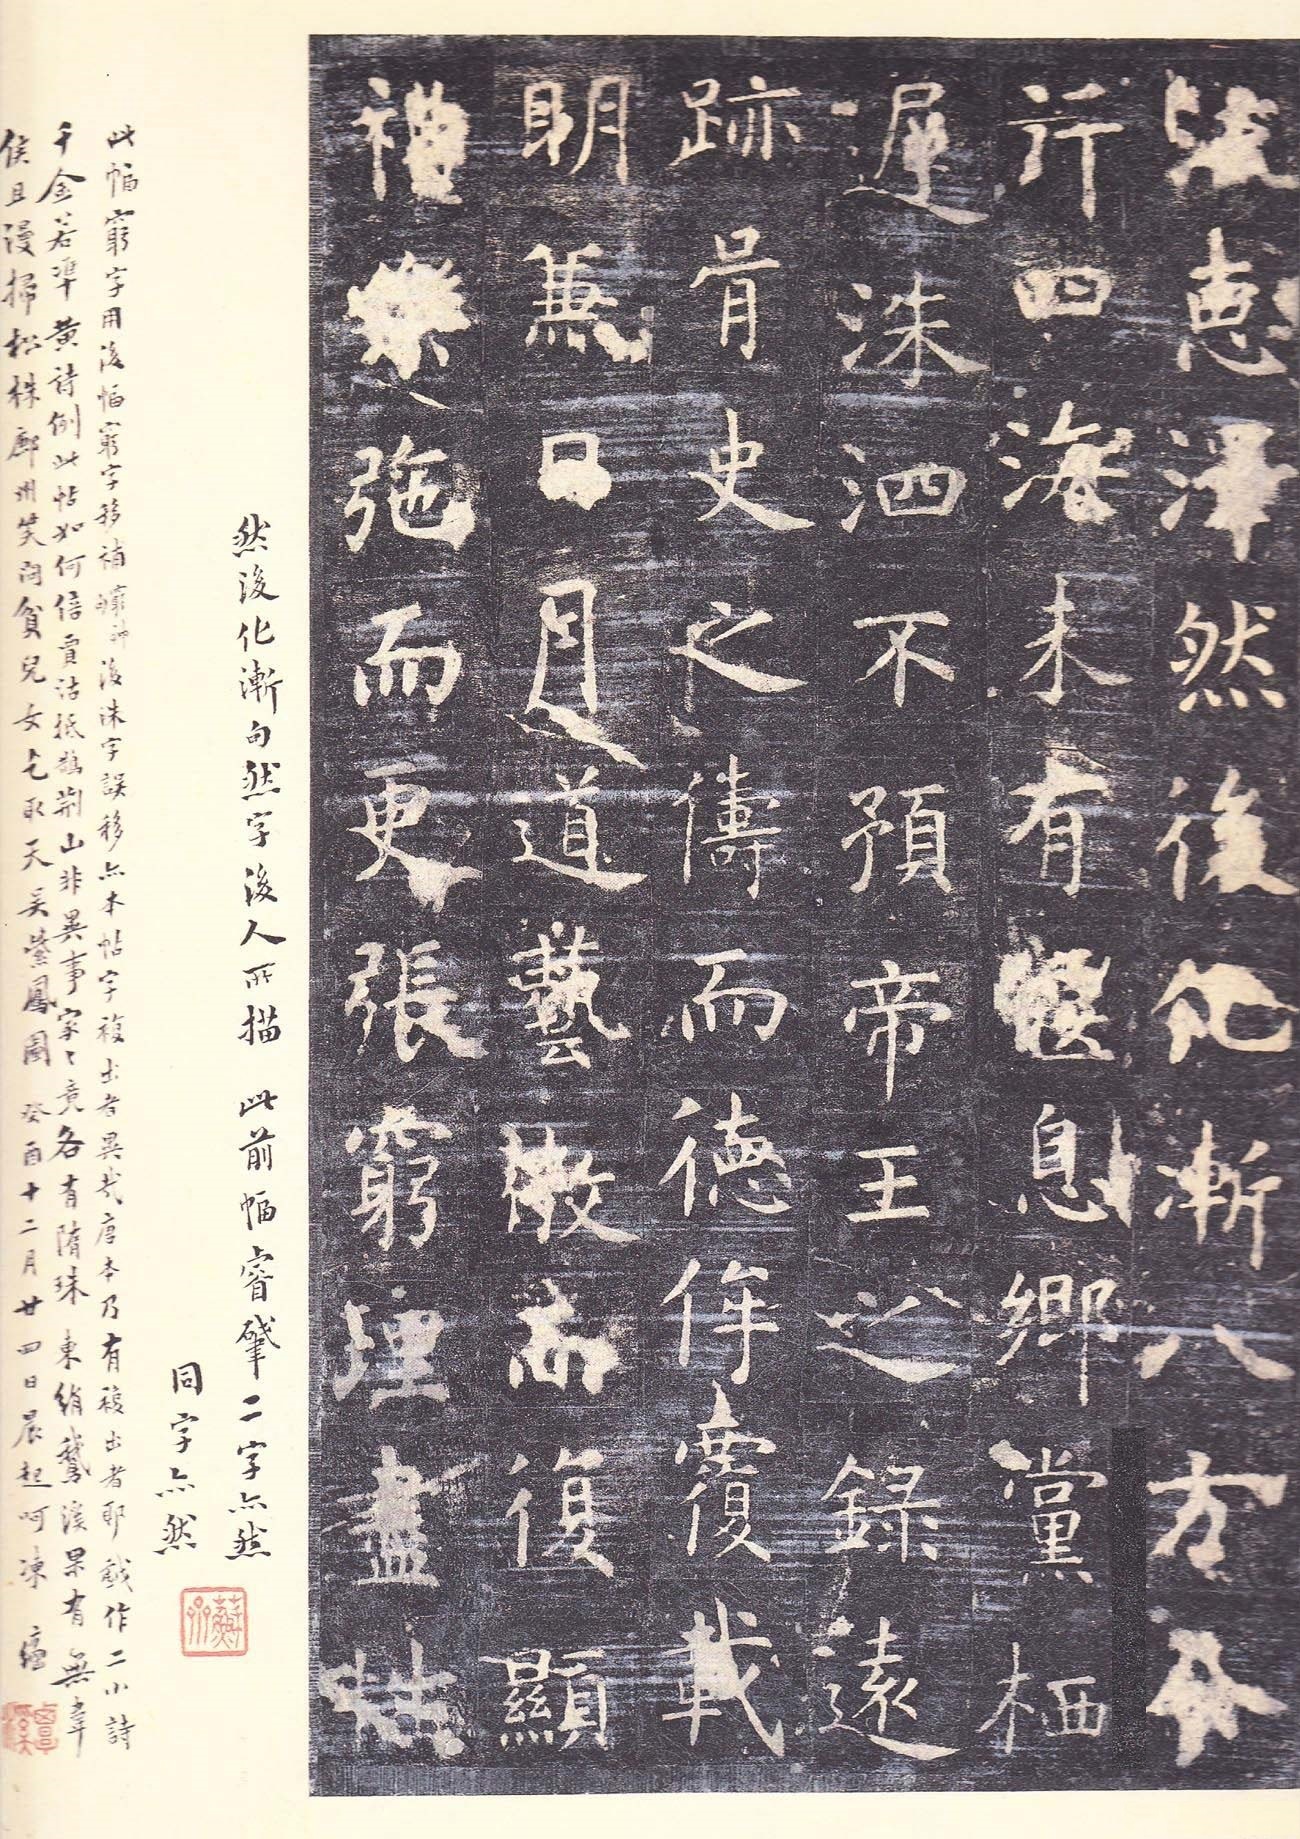 恵澤然後化漸八方令
行四海未有偃息鄉黨栖
遲洙泗不預帝王之錄遠
跡胥史之儔而德侔覆載
明兼日月道藝微而復顯
禮樂弛而更張窮理盡性
然後化漸句然字後人所描 此前幅睿肇二字亦然
同字亦然
此幅窮字用後幅窮字移補後洙字誤移亦本帖字複出者異哉唐本乃有複出者耶戲作二小詩
千金若準黃詩例此帖如何倍賈沽抵鵲荊山非異事家々竟各有隋珠 東絹鵝溪果有無韋
侯且漫掃松株鄜州笑問貧兒女乞取天吳紫鳳圖 癸酉十二月廿四日晨起呵凍